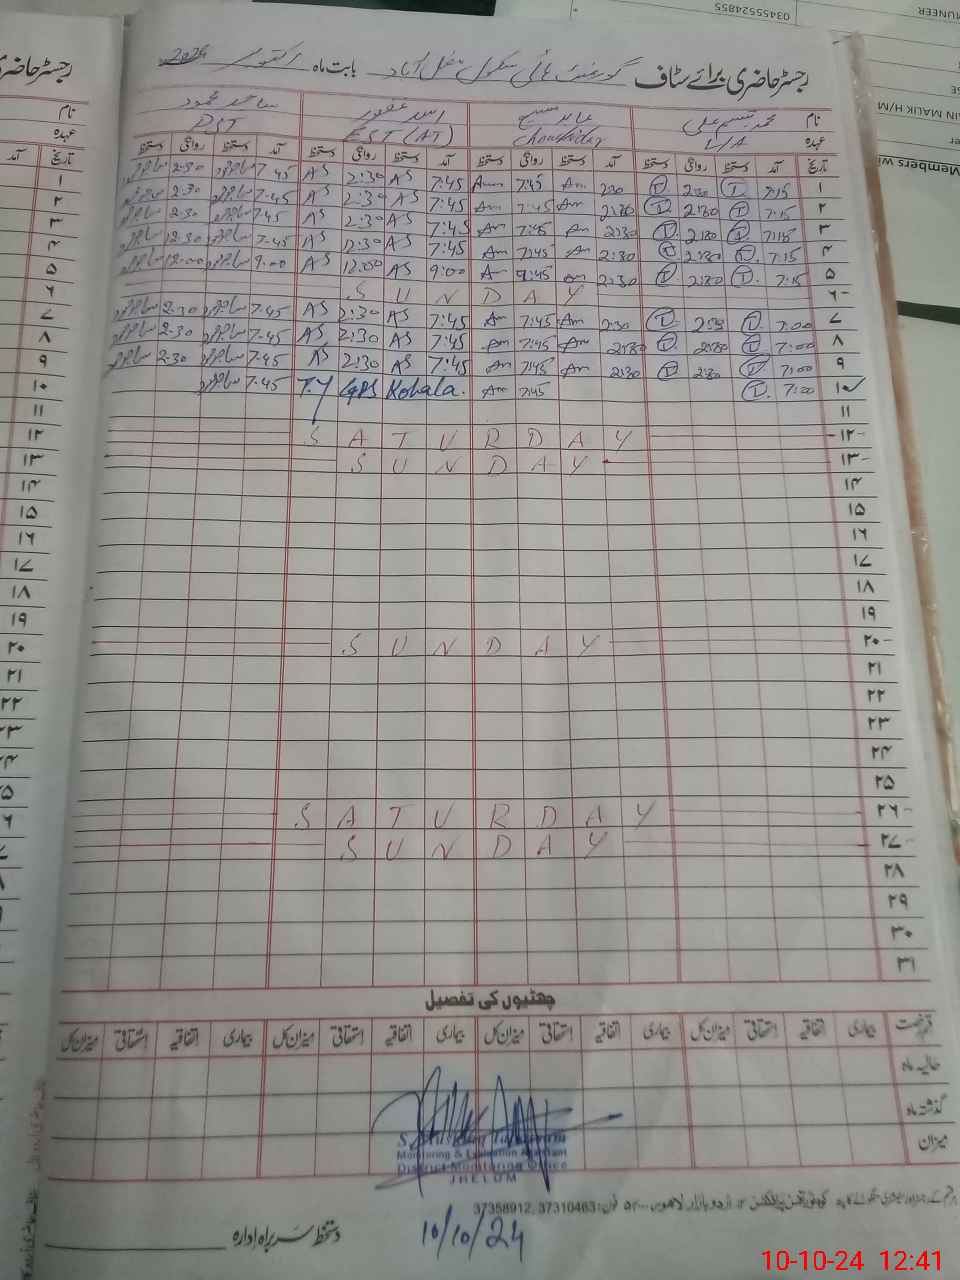 03455524855
MUNEER
MALIK H/M
Members wi
رجسٹر حاضری برائے سٹاف گورنمنٹ ہائی سکول فضل آباد بابت ماہ اکتوبر 2024
نام
عہدہ L/A Chowkidar EST (AT) PST
تاریخ آمد دستخط روانگی دستخط آمد دستخط روانگی دستخط آمد دستخط روانگی دستخط آمد دستخط روانگی دستخط
۱ 7:15 2:30 2:30 Am 7:45 Am 7:45 AS 2:30 AS 7.45 2.30
۲ 7:15 2:30 2:30 Am 7:45 Am 7:45 AS 2:30 AS 7.45 2.30
۳ 7:15 2:30 2:30 Am 7:45 Am 7:45 AS 2:30 AS 7.45 2.30
۴ 7:15 2:30 2:30 Am 7:45 Am 7:45 AS 12:30 AS 7.45 12.30
۵ 7:15 2:30 2:30 Am 9:45 Am 9:00 AS 12:00 AS 9.00 12.00
۶ SUNDAY
۷ 7:00 2:30 2:30 Am 7:45 Am 7:45 AS 2:30 AS 7.45 2.30
۸ 7:00 2:30 2:30 Am 7:45 Am 7:45 AS 2:30 AS 7.45 2.30
۹ 7:00 2:30 2:30 Am 7:45 Am 7:45 AS 2:30 AS 7.45 2.30
۱۰ 7:00 7:45 Am T.Y GPS Kohala. 7.45
۱۱
۱۲ SATURDAY
۱۳ SUNDAY
۱۴
۱۵
۱۶
۱۷
۱۸
۱۹
۲۰ SUNDAY
۲۱
۲۲
۲۳
۲۴
۲۵
۲۶ SATURDAY
۲۷ SUNDAY
۲۸
۲۹
۳۰
۳۱
چھٹیوں کی تفصیل
قسم رخصت بیماری اتفاقیہ استحقاقی میزان کل بیماری اتفاقیہ استحقاقی میزان کل بیماری اتفاقیہ استحقاقی میزان کل بیماری اتفاقیہ استحقاقی میزان کل
حالیہ ماہ
گذشتہ ماہ
میزان
Monitoring & Evaluation Assistant
District Monitoring Office
JHELUM
اردو بازار لاہور فون: 37310463, 37358912
دستخط سربراہ ادارہ
10/10/24
10-10-24 12:41